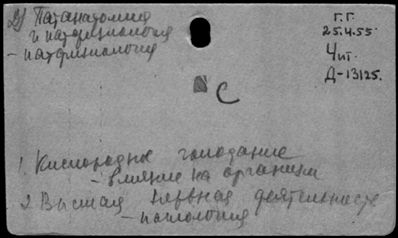 2) Патанатомия
и патфизиология
- патфизиология
Г.Г.
25.4.55.
Чит.
Д-13125.
С
1. Кислородное голодание
- влияние на организм
2. Высшая нервная деятельность
- патология